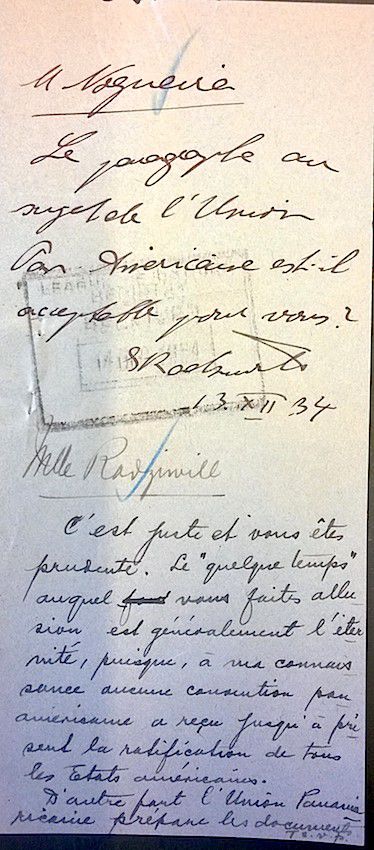 M Nogueira
Le paragraphe au
sujet de l'Union
Pan Américaine est-il
acceptable pour vous?
LEAGUE
13 XII 34
Mlle Radziwill
C'est juste et vous êtes
prudente. Le "quelque temps"
auquel vous faites allu-
sion est généralement l'éter
nité, puisque, à ma connais
sance aucune convention pan
américaine a reçu jusqu'à pré
sent la ratification de tous
les Etats américains.
D'autre part l'Union Paname
ricaine prépare les documents
T.S.V.P.